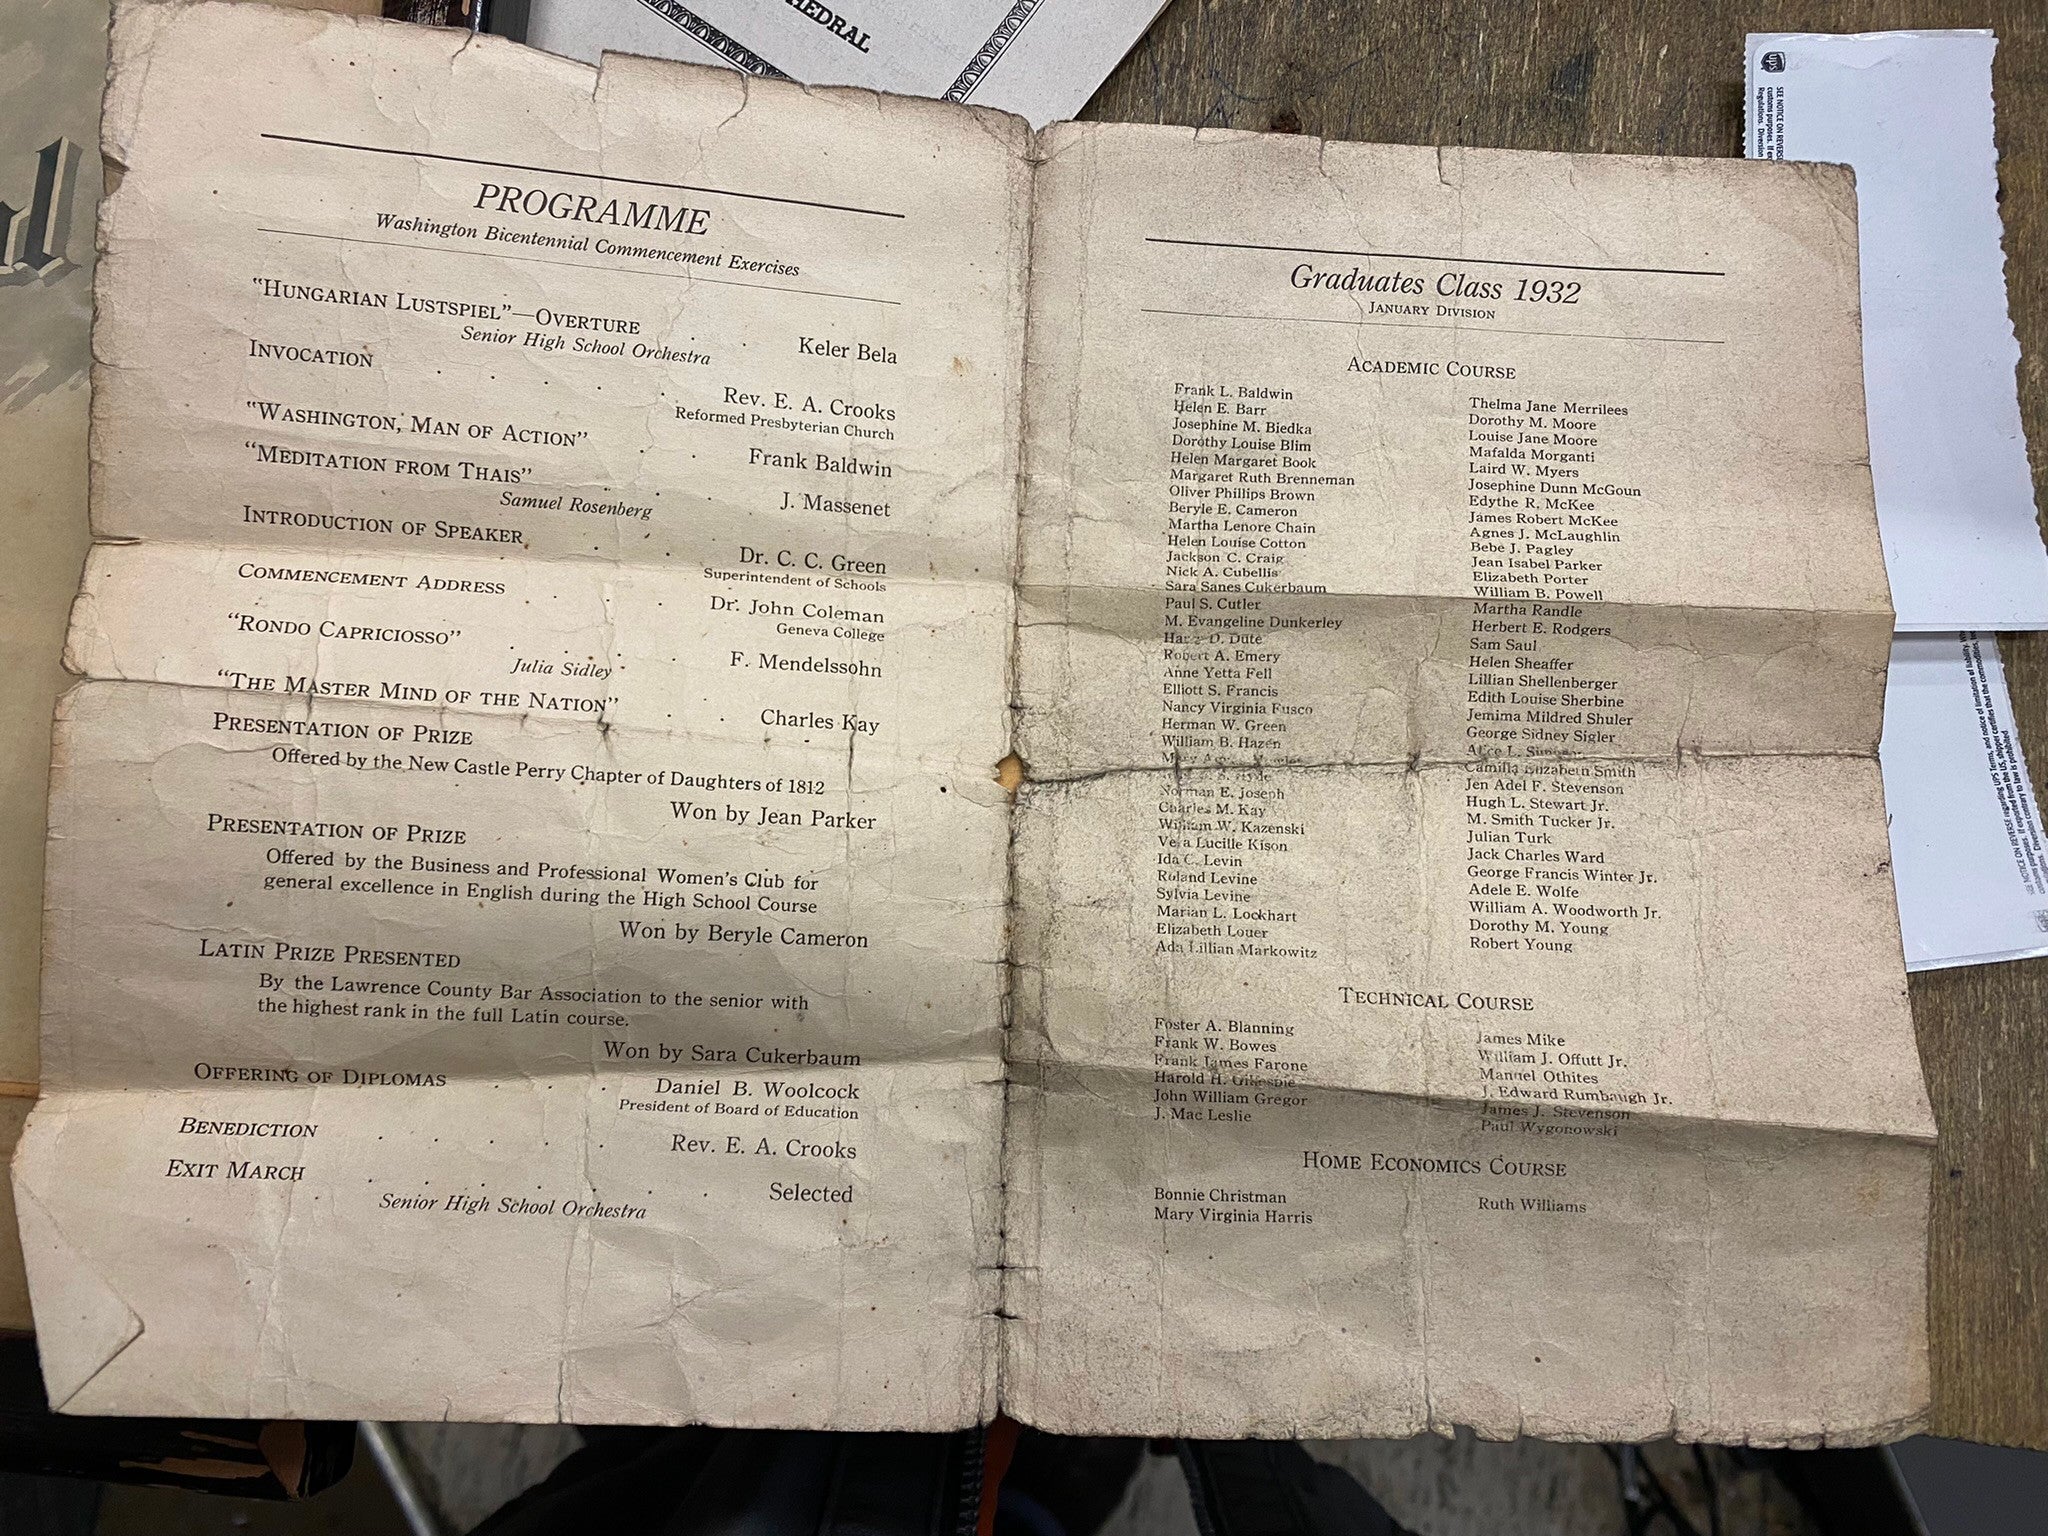 HEDRAL
PROGRAMME
Washington Bicentennial Commencement Exercises
"HUNGARIAN LUSTSPIEL"—OVERTURE . . Keler Bela
Senior High School Orchestra
INVOCATION . . . . . Rev. E. A. Crooks
Reformed Presbyterian Church
"WASHINGTON, MAN OF ACTION" . . Frank Baldwin
"MEDITATION FROM THAIS" . . . J. Massenet
Samuel Rosenberg
INTRODUCTION OF SPEAKER . . . Dr. C. C. Green
Superintendent of Schools
COMMENCEMENT ADDRESS . . . . Dr. John Coleman
Geneva College
"RONDO CAPRICIOSSO" . . . . F. Mendelssohn
Julia Sidley
"THE MASTER MIND OF THE NATION" . . Charles Kay
PRESENTATION OF PRIZE
Offered by the New Castle Perry Chapter of Daughters of 1812
Won by Jean Parker
PRESENTATION OF PRIZE
Offered by the Business and Professional Women's Club for
general excellence in English during the High School Course
Won by Beryle Cameron
LATIN PRIZE PRESENTED
By the Lawrence County Bar Association to the senior with
the highest rank in the full Latin course.
Won by Sara Cukerbaum
OFFERING OF DIPLOMAS . . . Daniel B. Woolcock
President of Board of Education
BENEDICTION . . . . . Rev. E. A. Crooks
EXIT MARCH . . . . . . Selected
Senior High School Orchestra
Graduates Class 1932
JANUARY DIVISION
ACADEMIC COURSE
Frank L. Baldwin
Helen E. Barr
Josephine M. Biedka
Dorothy Louise Blim
Helen Margaret Book
Margaret Ruth Brenneman
Oliver Phillips Brown
Beryle E. Cameron
Martha Lenore Chain
Helen Louise Cotton
Jackson C. Craig
Nick A. Cubellis
Sara Sanes Cukerbaum
Paul S. Cutler
M. Evangeline Dunkerley
D. Dute
Robert A. Emery
Anne Yetta Fell
Elliott S. Francis
Nancy Virginia Fusco
Herman W. Green
William B. Hazen
Mary
Hyde
Norman E. Joseph
Charles M. Kay
William W. Kazenski
Vera Lucille Kison
Ida C. Levin
Roland Levine
Sylvia Levine
Marian L. Lockhart
Elizabeth Louer
Ada Lillian Markowitz
Thelma Jane Merrilees
Dorothy M. Moore
Louise Jane Moore
Mafalda Morganti
Laird W. Myers
Josephine Dunn McGoun
Edythe R. McKee
James Robert McKee
Agnes J. McLaughlin
Bebe J. Pagley
Jean Isabel Parker
Elizabeth Porter
William B. Powell
Martha Randle
Herbert E. Rodgers
Sam Saul
Helen Sheaffer
Lillian Shellenberger
Edith Louise Sherbine
Jemima Mildred Shuler
George Sidney Sigler
Alice L.
Camilla Elizabeth Smith
Jen Adel F. Stevenson
Hugh L. Stewart Jr.
M. Smith Tucker Jr.
Julian Turk
Jack Charles Ward
George Francis Winter Jr.
Adele E. Wolfe
William A. Woodworth Jr.
Dorothy M. Young
Robert Young
TECHNICAL COURSE
Foster A. Blanning
Frank W. Bowes
Frank James Farone
Harold H. Gillespie
John William Gregor
J. Mac Leslie
James Mike
William J. Offutt Jr.
Manuel Othites
J. Edward Rumbaugh Jr.
James J. Stevenson
Paul Wygonowski
HOME ECONOMICS COURSE
Bonnie Christman
Mary Virginia Harris
Ruth Williams
ups
SEE NOTICE ON REVERSE
customs purposes. If
Regulations. Diversion
SEE NOTICE ON REVERSE regarding UPS Terms, and notice of limitation of liability.
customs purposes. If exported from the US, shipper certifies that the commodities,
Diversion contrary to law is prohibited